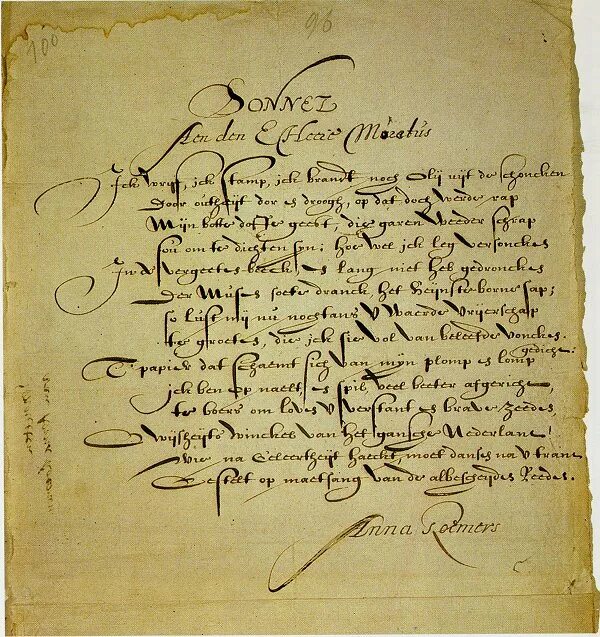 100
96
SONNET
Aen den E Heere Moretus
Ick wrijf, ick stamp, ick brandt noch Olij uijt de schoncken
Door outheijt dor es droogh, op dat doch werde rap
Mijn botte doffe geest, die garen weeder schrap
sou om te dichten sijn; hoe wel ick leg versoncken
In de vergeetes beeck, es lang niet heb gedroncken
Der Muses soete dranck, het Reijnste borne sap;
so lust mij nu nochtans U Waerde Vrijerschap
te groetes, die ick sie vol van beleefde voncken.
T'papier dat schaemt sich van mijn plomp es lomp gedicht.
ick ben op naelt, es spil, veel beeter afgericht,
te boers om loves U verstant es brave zeedes,
O wijsheijts Winckel van het gansche Nederlant
Wie na Geleertheijt haeckt, moet danses na U trant
Gestelt op maetsang van de albescheijdes Reedes.
Anna Roemers